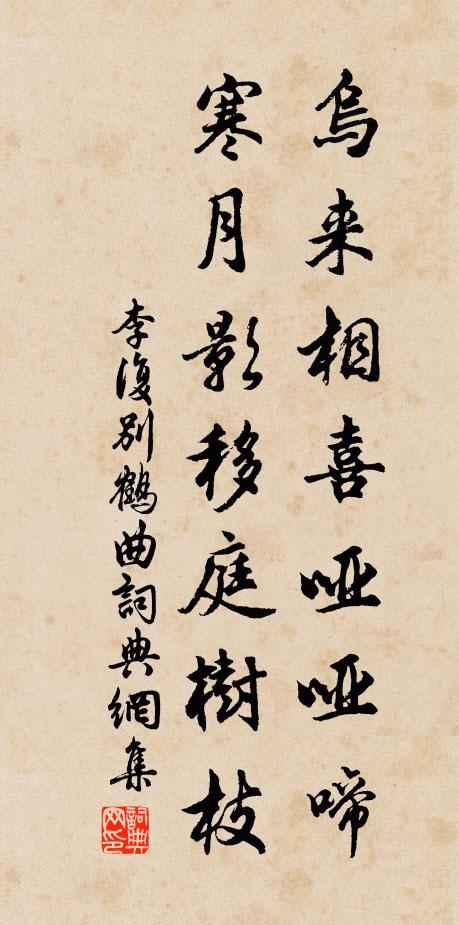 烏来相喜啞啞啼
寒月影移庭樹枝
李復別鶴曲詞典網集
詞典网印